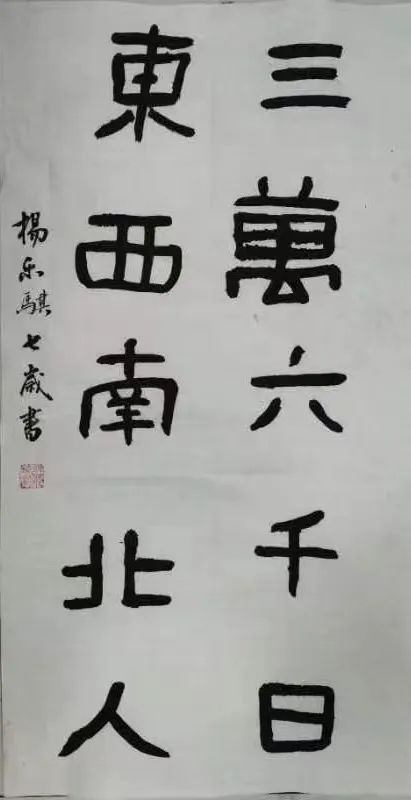 三萬六千日
東西南北人
楊樂騏七歲書